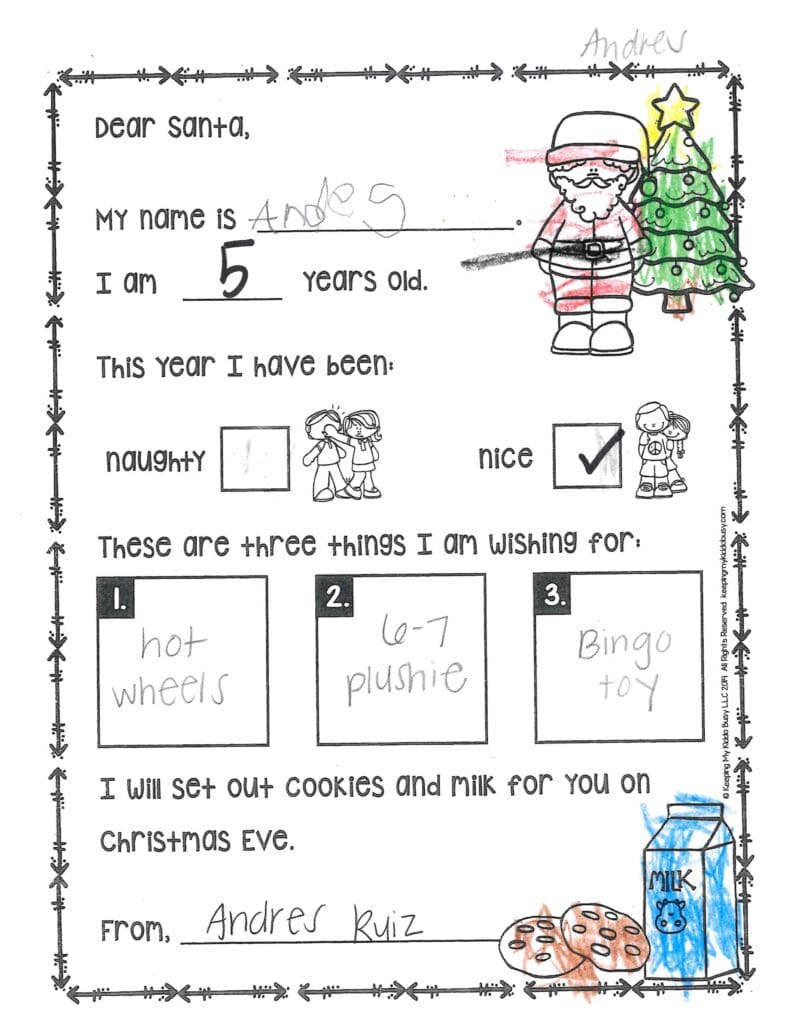 Andres
Dear Santa,
My name is Andres.
I am 5 years old.
This year I have been:
naughty nice
These are three things I am wishing for:
1. 2. 3.
hot 6-7 Bingo
wheels plushie toy
I will set out cookies and milk for you on
Christmas Eve.
From, Andres Ruiz
MILK
© Keeping My Kiddo Busy LLC 2019 All Rights Reserved keepingmykiddobusy.com